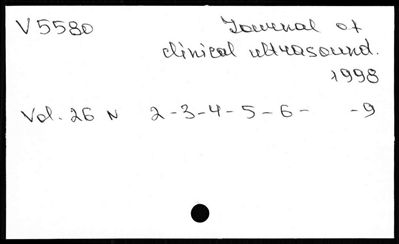 V5580 Journal of
clinical ultrasound.
1998
Vol. 26 N 2-3-4-5-6- -9